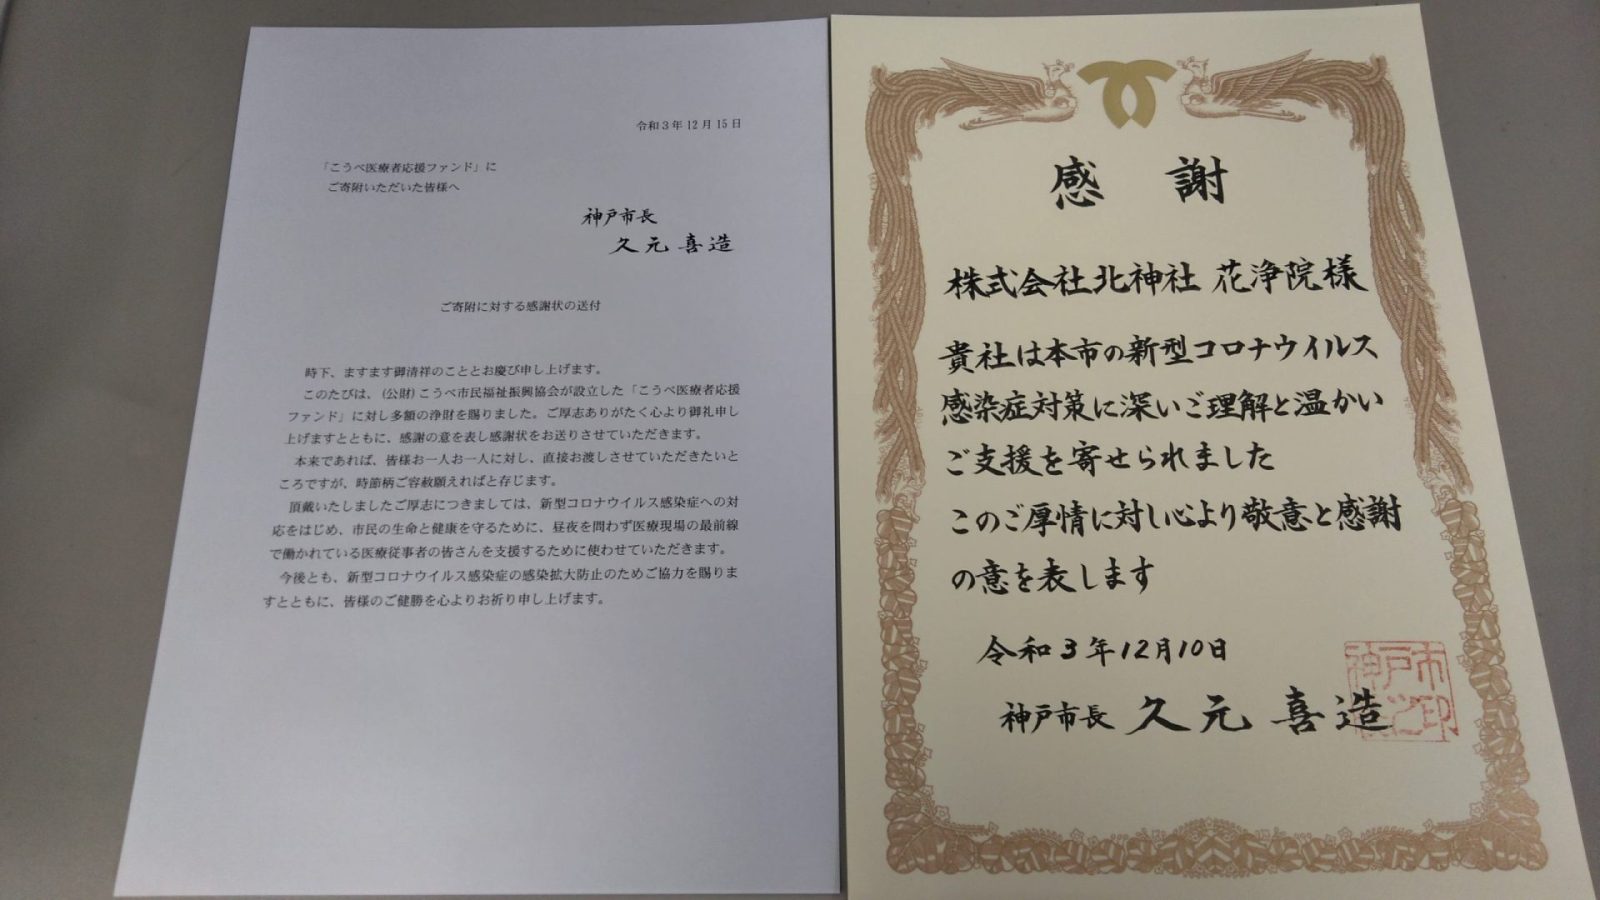 令和3年12月15日
「こうべ医療者応援ファンド」に
ご寄附いただいた皆様へ
神戸市長
久元喜造
ご寄附に対する感謝状の送付
時下、ますます御清祥のこととお慶び申し上げます。
このたびは、(公財)こうべ市民福祉振興協会が設立した「こうべ医療者応援
ファンド」に対し多額の浄財を賜りました。ご厚志ありがたく心より御礼申し
上げますとともに、感謝の意を表し感謝状をお送りさせていただきます。
本来であれば、皆様お一人お一人に対し、直接お渡しさせていただきたいと
ころですが、時節柄ご容赦願えればと存じます。
頂戴いたしましたご厚志につきましては、新型コロナウイルス感染症への対
応をはじめ、市民の生命と健康を守るために、昼夜を問わず医療現場の最前線
で働かれている医療従事者の皆さんを支援するために使わせていただきます。
今後とも、新型コロナウイルス感染症の感染拡大防止のためご協力を賜りま
すとともに、皆様のご健勝を心よりお祈り申し上げます。
感謝
株式会社北神社 花浄院様
貴社は本市の新型コロナウイルス
感染症対策に深いご理解と温かい
ご支援を寄せられました
このご厚情に対し心より敬意と感謝
の意を表します
令和3年12月10日
神戸市長 久元喜造